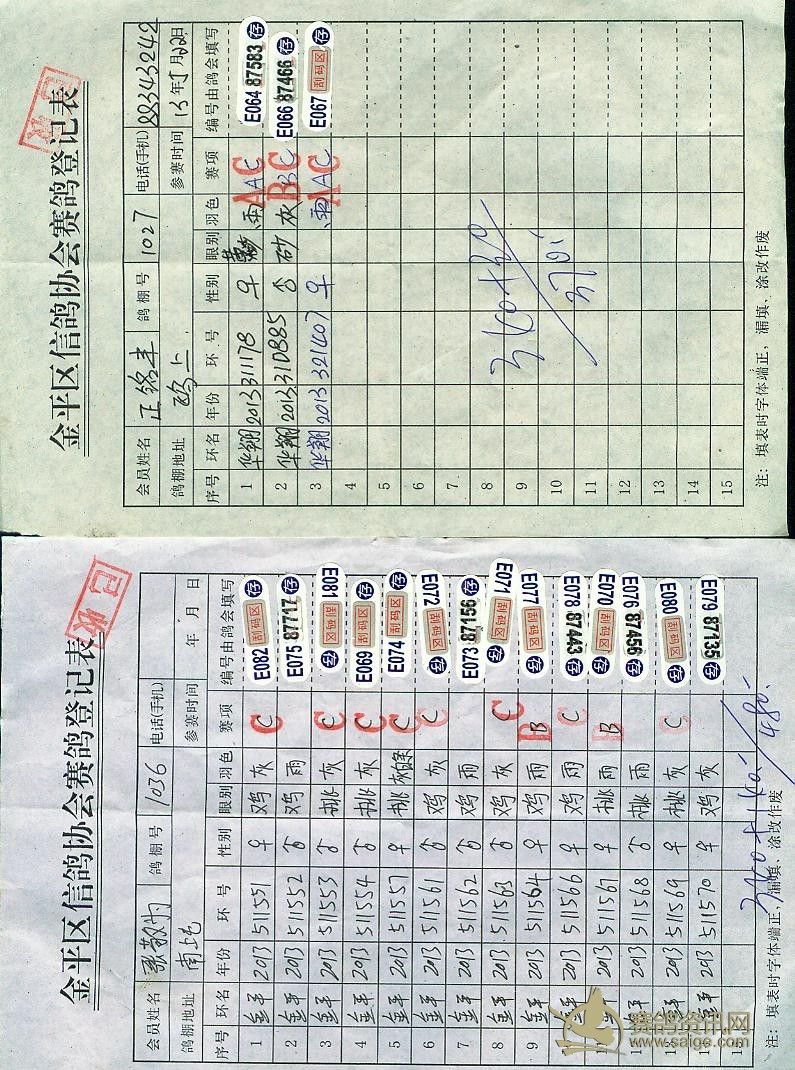 已收
金平区信鸽协会赛鸽登记表
会员姓名 鸽棚号 1027 电话(手机) 88343242
鸽棚地址 鸥上 参赛时间 13年 月22日
序号 环名 年份 环号 性别 眼别 羽色 赛项 编号由鸽会填写
1 华翔 2013 311178 ♀ 雨 AC E064 87583 存
2 华翔 2013 310885 ♂ 砂 灰 BC E066 87466 存
3 华翔 2013 321407 ♀ 雨 AC E067 刮码区 存
4
5
6
7
8
9
10
11
12
13
14
15
注: 填表时字体端正、漏填、涂改作废
已收
金平区信鸽协会赛鸽登记表
会员姓名 张敬 鸽棚号 1036 电话(手机)
鸽棚地址 南 参赛时间 年 月 日
序号 环名 年份 环号 性别 眼别 羽色 赛项 编号由鸽会填写
1 金平 2013 511551 ♀ 鸡 灰 C E082 刮码区 存
2 金平 2013 511552 ♂ 鸡 雨 E075 87717 存
3 金平 2013 511553 ♂ 桃 灰 C E081 刮码区 存
4 金平 2013 511554 ♂ 桃 灰 C E069 刮码区 存
5 金平 2013 511557 ♀ 桃 灰 C E074 刮码区 存
6 金平 2013 511561 ♂ 鸡 灰 C E072 刮码区 存
7 金平 2013 511562 ♂ 鸡 雨 E073 87156 存
8 金平 2013 511563 ♂ 鸡 灰 C E071 刮码区 存
9 金平 2013 511564 ♀ 鸡 灰 B E077 刮码区 存
金平 2013 511566 ♀ 鸡 雨 C E078 87443 存
金平 2013 511567 ♀ 桃 雨 B E070 刮码区 存
金平 2013 511568 ♂ 桃 雨 E076 87456 存
金平 2013 511569 ♀ 桃 灰 C E080 刮码区 存
金平 2013 511570 ♀ 鸡 灰 E079 87135 存
注: 填表时字体端正、漏填、涂改作废
赛鸽资讯网
www.saige.com